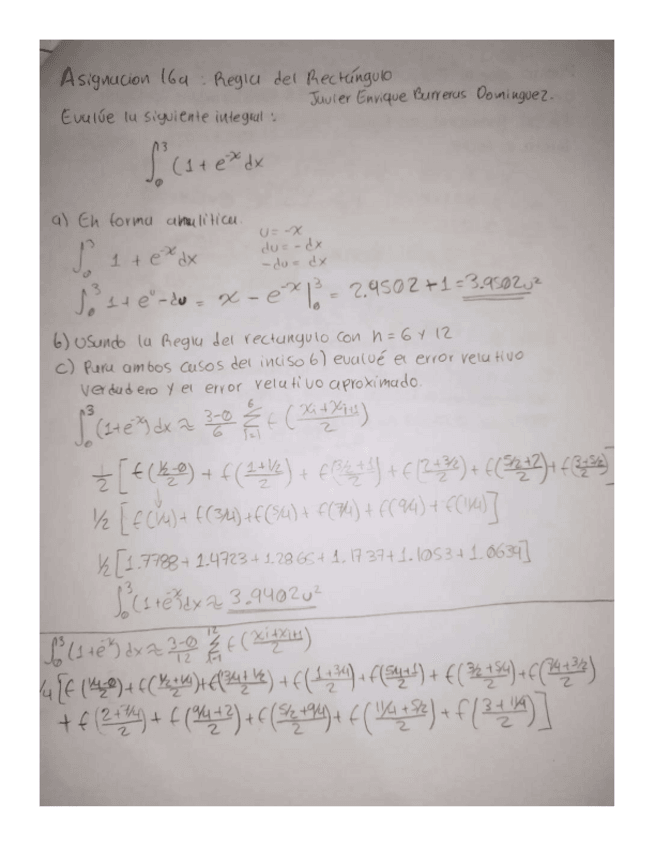 Asignacion 16a : Regla del Rectángulo
Javier Enrique Barreras Dominguez.
Evalúe la siguiente integral :
∫₀³ (1 + e⁻ˣ dx
a) En forma analitica.
∫₀³ 1 + e⁻ˣ dx
u = -x
du = - dx
-du = dx
∫₀³ 1 + eᵘ - du = x - e⁻ˣ |₀³ = 2.9502 + 1 = 3.9502u²
b) Usando la Regla del rectangulo con n = 6 y 12
c) Para ambos casos del inciso b) evalué el error relativo
verdadero y el error relativo aproximado.
∫₀³ (1+e⁻ˣ) dx ≈ (3-0)/6 Σ⁶ᵢ₌₁ f((xi + xi+1)/2)
1/2 [f((1/2-0)/2) + f((1+1/2)/2) + f((3/2+1)/2) + f((2+3/2)/2) + f((5/2+2)/2) + f((3+5/2)/2)]
1/2 [f(1/4) + f(3/4) + f(5/4) + f(7/4) + f(9/4) + f(11/4)]
1/2 [1.7788 + 1.4723 + 1.2865 + 1.1737 + 1.1053 + 1.0639]
∫₀³ (1+e⁻ˣ) dx ≈ 3.9402u²
∫₀³ (1+e⁻ˣ) dx ≈ (3-0)/12 Σ¹²ᵢ₌₁ f((xi+xi+1)/2)
1/4 [f((1/4-0)/2) + f((1/2+1/4)/2) + f((3/4+1/2)/2) + f((1+3/4)/2) + f((5/4+1)/2) + f((3/2+5/4)/2) + f((7/4+3/2)/2)
+ f((2+7/4)/2) + f((9/4+2)/2) + f((5/2+9/4)/2) + f((11/4+5/2)/2) + f((3+11/4)/2)]